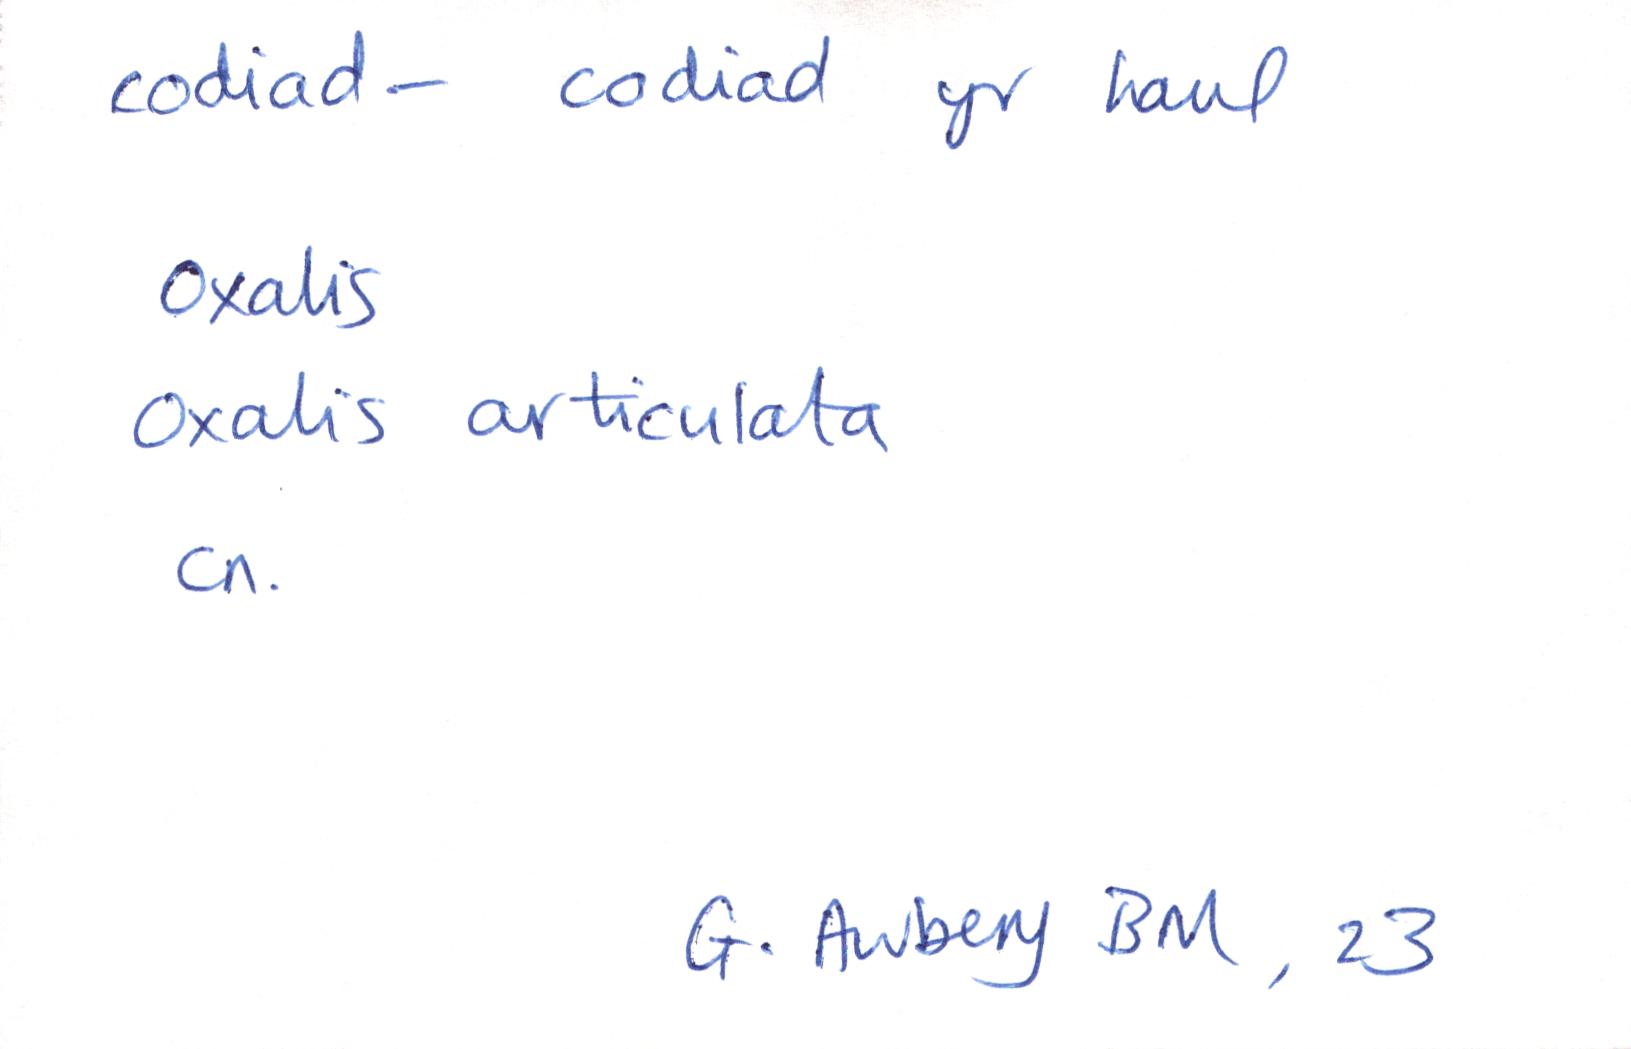 codiad - codiad yr haul
Oxalis
Oxalis articulata
Cn.
G. Awbery BM, 23